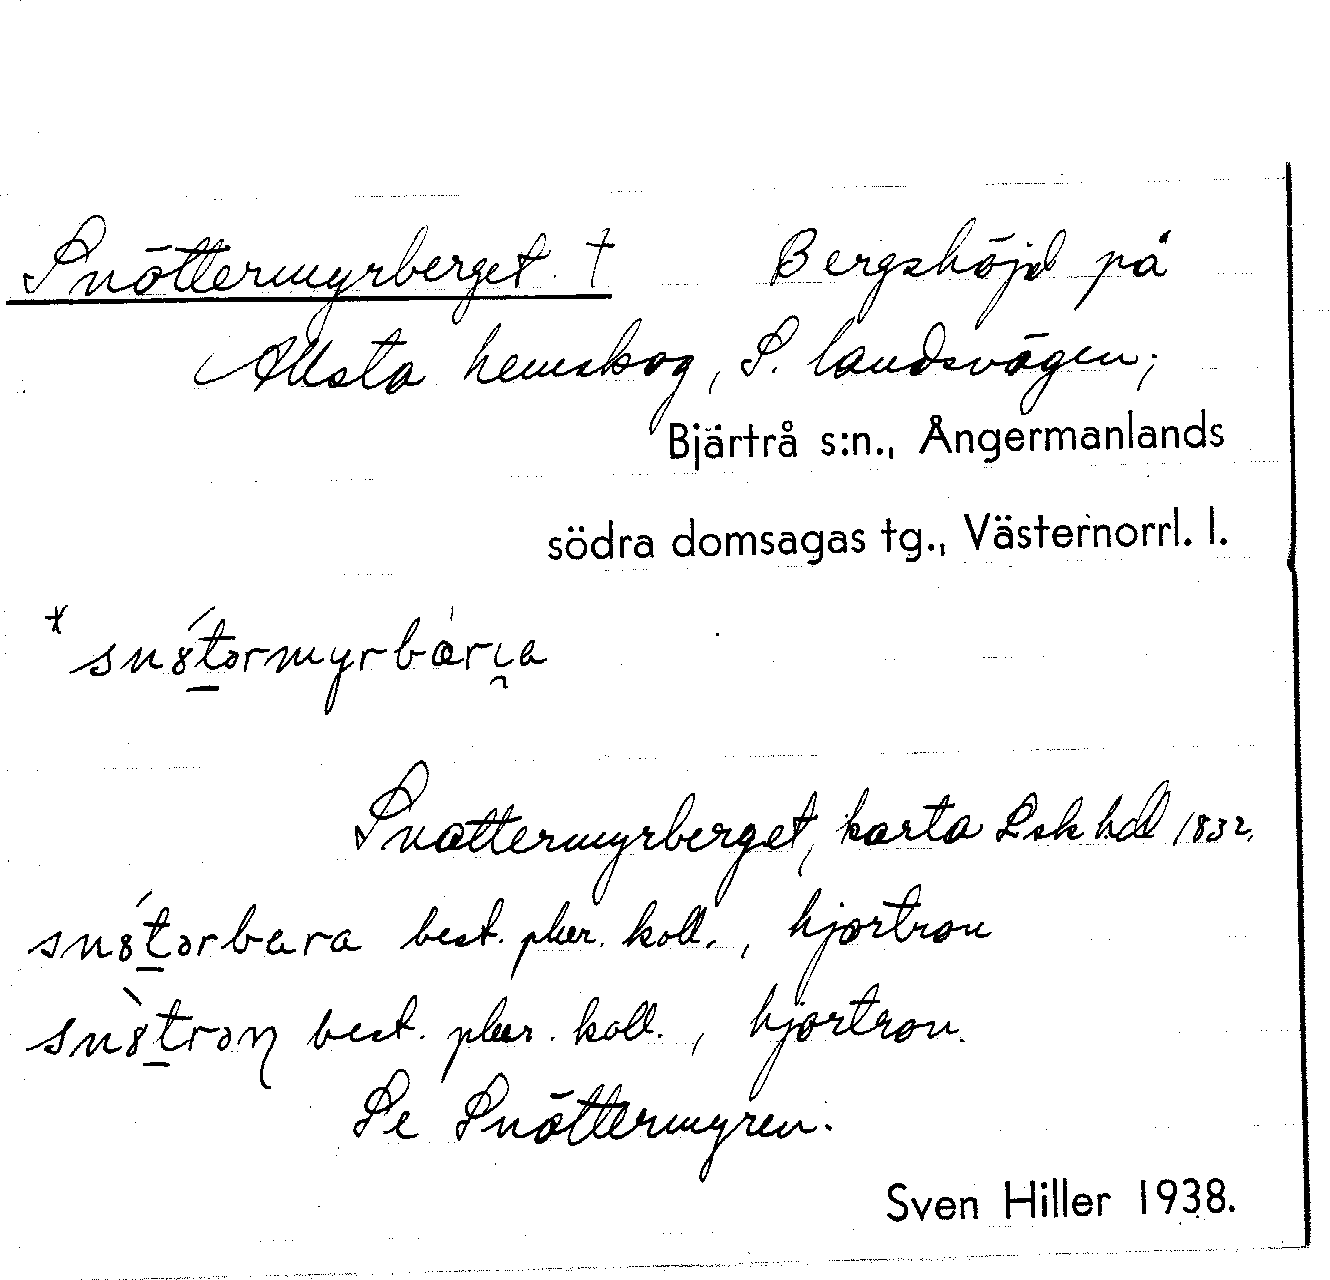 Snöttermyrberget. †   Bergshöjd på
Allsta hemskog, S. landsvägen;
Bjärtrå s:n., Ångermanlands
södra domsagas tg., Västernorrl. l.
Snottermyrberget, karta Lsk hdl 1832.
best. plur. koll., hjortron
best. plur. koll., hjortron.
Se Snöttermyren.
Sven Hiller 1938.